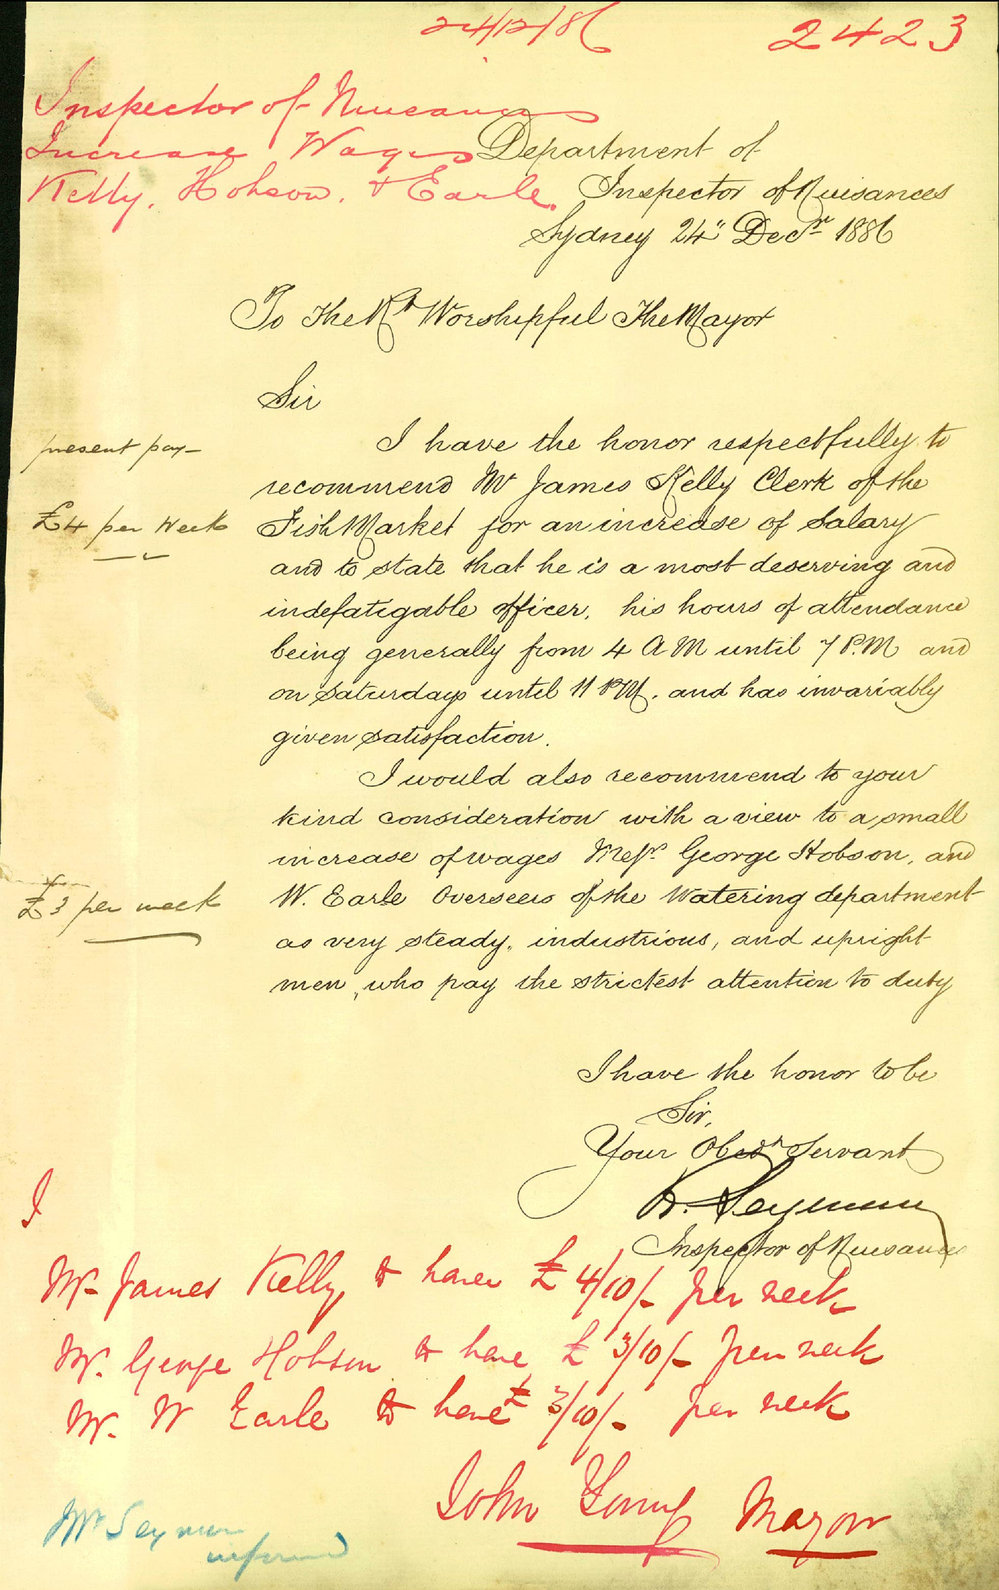 24/12/86
2423
Inspector of Nuisances
Increase Wages
Kelly, Hobson, & Earle.
Department of
Inspector of Nuisances
Sydney 24" Decr 1886
To The Rt Worshipful The Mayor
Sir
I have the honor respectfully to
recommend Mr James Kelly Clerk of the
Fish Market for an increase of Salary
and to state that he is a most deserving and
indefatigable officer, his hours of attendance
being generally from 4 A M until 7 P.M and
on Saturdays until 11 P.M. and has invariably
given satisfaction.
present pay
£4 per week
I would also recommend to your
kind consideration with a view to a small
increase of wages Messrs George Hobson, and
W. Earle Overseers of the Watering department
as very steady, industrious, and upright
men, who pay the strictest attention to duty
£3 per week
I have the honor to be
Sir,
Your Obedt Servant
R. Seymour
Inspector of Nuisances
Mr James Kelly to have £4/10/- per week
Mr. George Hobson to have £3/10/- per week
Mr. W Earle to have £3/10/- per week
John Young Mayor
Mr Seymour
informed